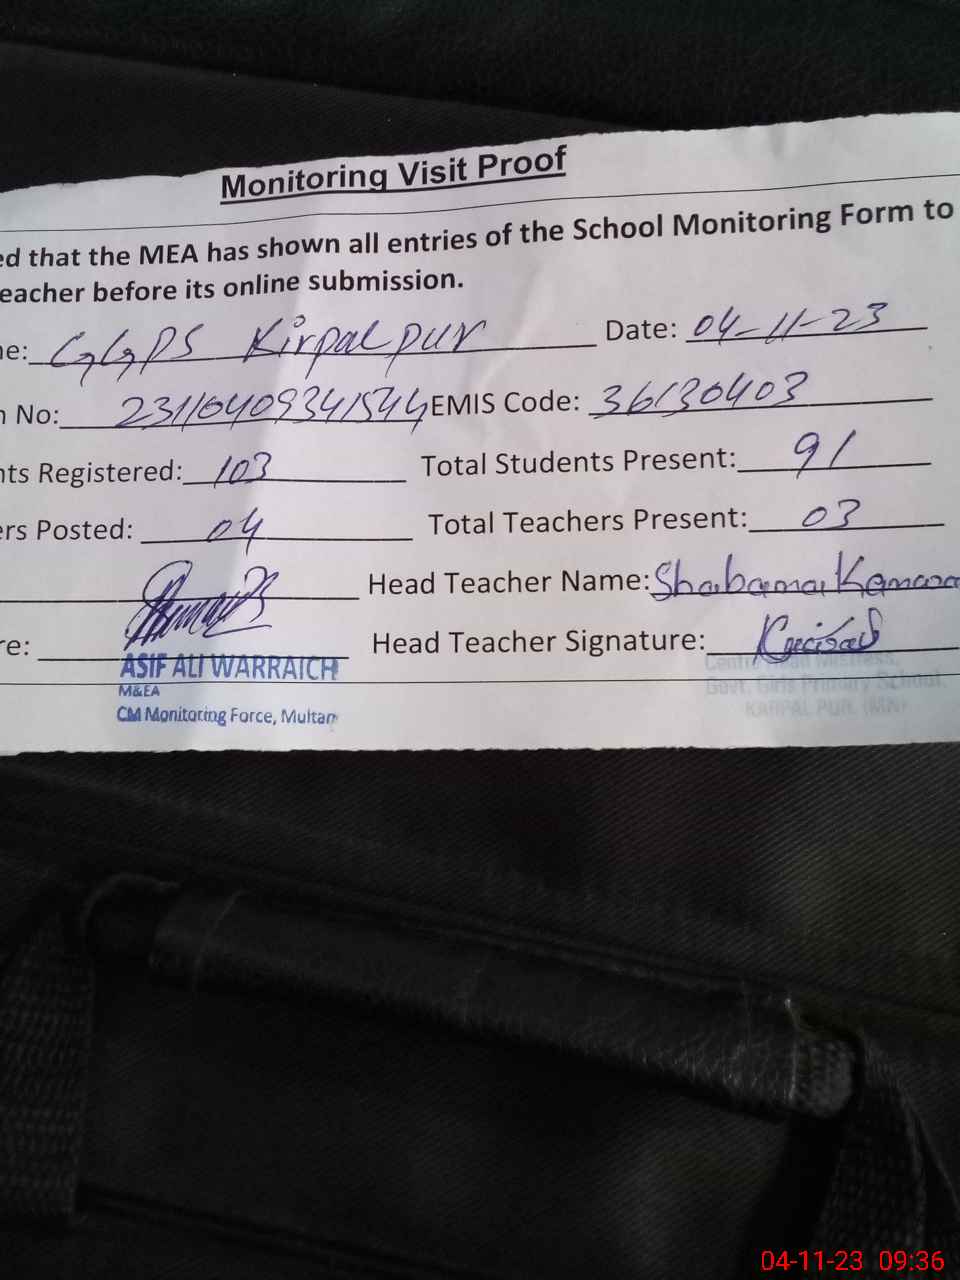 Monitoring Visit Proof
ed that the MEA has shown all entries of the School Monitoring Form to
eacher before its online submission.
ne: GGPS Kirpal pur Date: 04-11-23
n No: 23110409341544 EMIS Code: 36130403
nts Registered: 103 Total Students Present: 91
ers Posted: 04 Total Teachers Present: 03
Head Teacher Name: Shabana Kanwal
re: Head Teacher Signature:
ASIF ALI WARRAICH
M&EA
CM Monitoring Force, Multan
Centre Head Mistress,
Govt. Girls Primary School,
KARPAL PUR, (MN)
04-11-23 09:36